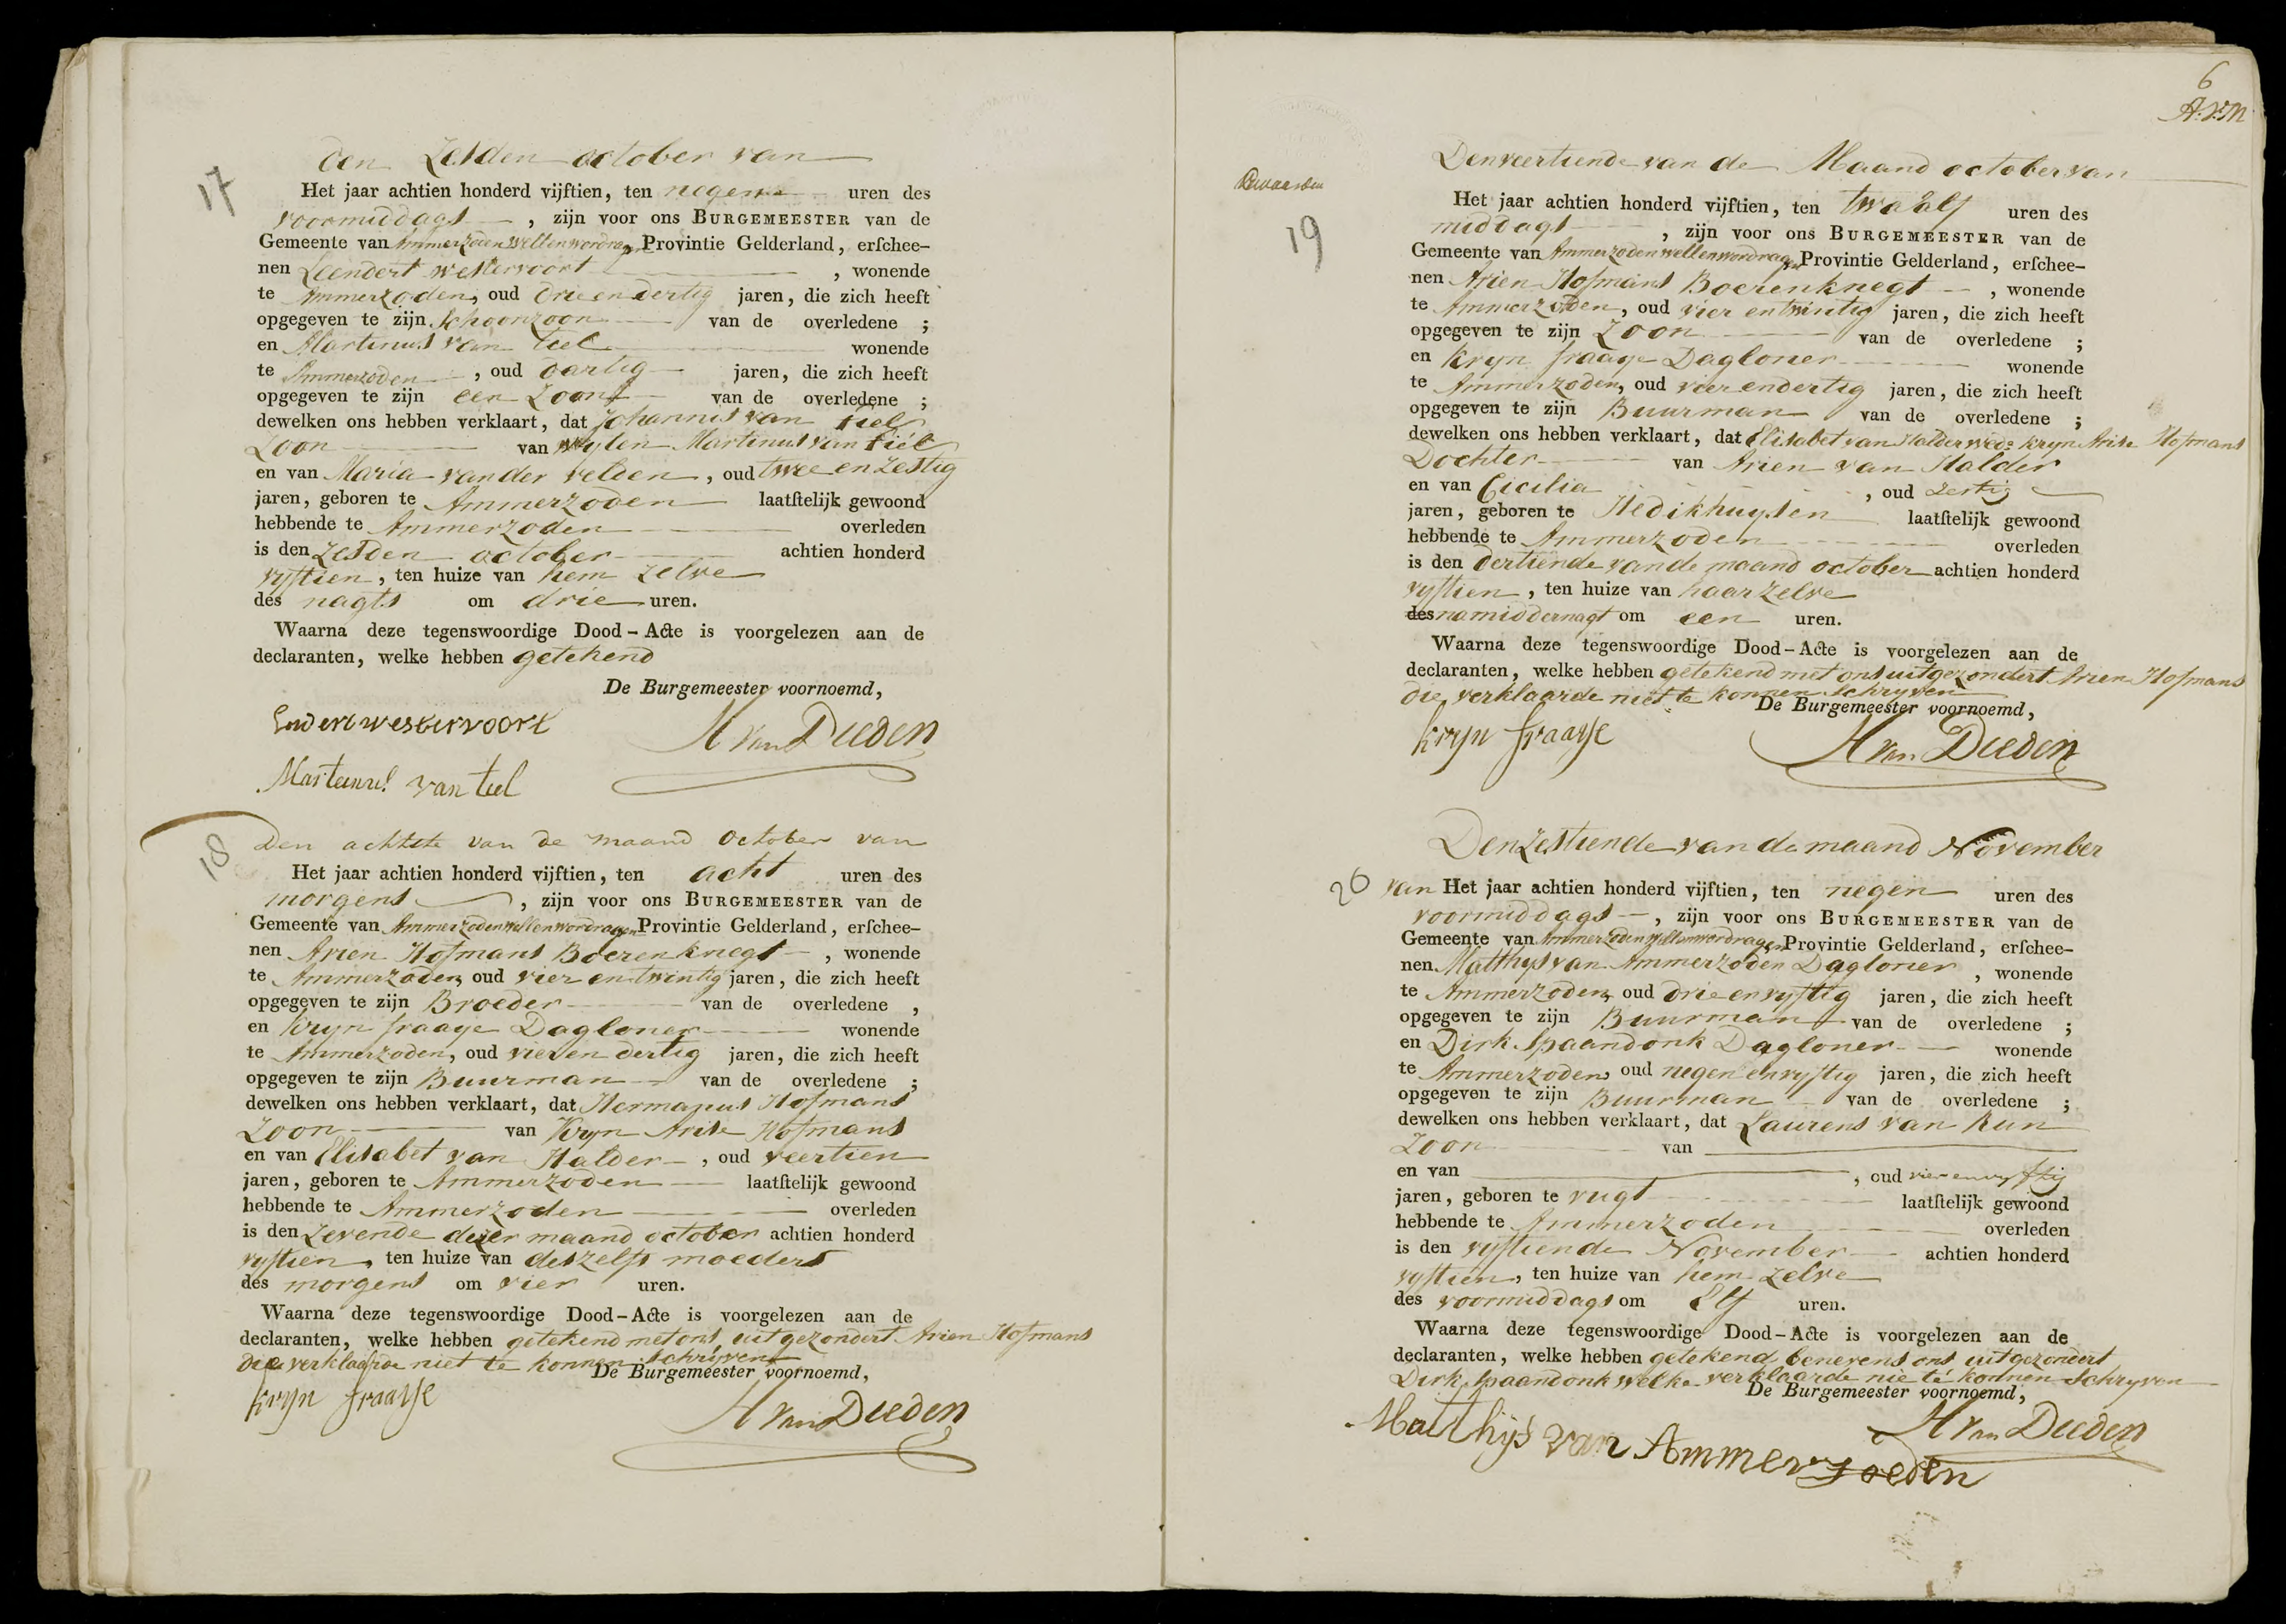 17
den Zesden october van
Het jaar achtien honderd vijftien, ten negen uren des
voormiddags, zijn voor ons BURGEMEESTER van de
Gemeente van Ammerzoden Wellenwordragen Provintie Gelderland, erſchee-
nen Leendert westervoort, wonende
te Ammerzoden, oud drie en dertig jaren, die zich heeft
opgegeven te zijn Schoonzoon van de overledene ;
en Martinus van tiel wonende
te Ammerzoden, oud dartig jaren, die zich heeft
opgegeven te zijn een Zoon van de overledene ;
dewelken ons hebben verklaart, dat Johannis van tiel
Zoon van wylen Martinus van tiel
en van Maria van der velden, oud twee en zestig
jaren, geboren te Ammerzoden laatſtelijk gewoond
hebbende te Ammerzoden overleden
is den Zesden october achtien honderd
vyftien, ten huize van hem zelve
des nagts om drie uren.
Waarna deze tegenswoordige Dood-Acte is voorgelezen aan de
declaranten, welke hebben getekend
De Burgemeester voornoemd,
Lndert westervoort
H van Dieden
Marteinus van tiel
18
Den achtste van de maand October van
Het jaar achtien honderd vijftien, ten acht uren des
morgens, zijn voor ons BURGEMEESTER van de
Gemeente van Ammerzoden wellenwordragen Provintie Gelderland, erſchee-
nen Arien Hofmans Boerenknegt, wonende
te Ammerzoden, oud vier en twintig jaren, die zich heeft
opgegeven te zijn Broeder van de overledene ,
en Kryn fraaye Dagloner wonende
te Ammerzoden, oud vier en dertig jaren, die zich heeft
opgegeven te zijn Buurman van de overledene ;
dewelken ons hebben verklaart, dat Hermanus Hofmans
Zoon van Kryn Arise Hofmans
en van Elisabet van Halder, oud veertien
jaren, geboren te Ammerzoden laatſtelijk gewoond
hebbende te Ammerzoden overleden
is den Zevende dezer maand october achtien honderd
vyftien, ten huize van deszelfs moeders
des morgens om vier uren.
Waarna deze tegenswoordige Dood-Acte is voorgelezen aan de
declaranten, welke hebben getekend met ons uitgezondert Arien Hofmans
die verklaarde niet te konnen schryven
De Burgemeester voornoemd,
kryn fraaye
H van Dieden
6
19
Den veertiende van de Maand october van
Het jaar achtien honderd vijftien, ten twaalf uren des
middags, zijn voor ons BURGEMEESTER van de
Gemeente van Ammerzoden wellenwordragen Provintie Gelderland, erſchee-
nen Arien Hofmans Boerenknegt, wonende
te Ammerzoden, oud vier en twintig jaren, die zich heeft
opgegeven te zijn Zoon van de overledene ;
en Kryn fraaye Dagloner wonende
te Ammerzoden, oud vier en dertig jaren, die zich heeft
opgegeven te zijn Buurman van de overledene ;
dewelken ons hebben verklaart, dat Elisabet van Halder wede Kryn Arise Hofmans
Dochter van Arien van Halder
en van Cicilia, oud zestig
jaren, geboren te Hedikhuysen laatſtelijk gewoond
hebbende te Ammerzoden overleden
is den dertiende van de maand october achtien honderd
vyftien, ten huize van haar zelve
des namiddernagt om een uren.
Waarna deze tegenswoordige Dood-Acte is voorgelezen aan de
declaranten, welke hebben getekend met ons uitgezondert Arien Hofmans
die verklaarde niet te konnen schryven
De Burgemeester voornoemd,
kryn fraaye
H van Dieden
20
Den Zestiende van de maand November
van Het jaar achtien honderd vijftien, ten negen uren des
voormiddags, zijn voor ons BURGEMEESTER van de
Gemeente van Ammerzoden wellenwordragen Provintie Gelderland, erſchee-
nen Matthys van Ammerzoden Dagloner, wonende
te Ammerzoden, oud drie en vyftig jaren, die zich heeft
opgegeven te zijn Buurman van de overledene ;
en Dirk Spaandonk Dagloner wonende
te Ammerzoden, oud negen en vyftig jaren, die zich heeft
opgegeven te zijn Buurman van de overledene ;
dewelken ons hebben verklaart, dat Laurens van Kun
Zoon van
en van, oud vier en vyftig
jaren, geboren te vugt laatſtelijk gewoond
hebbende te Ammerzoden overleden
is den vyftiende November achtien honderd
vyftien, ten huize van hem zelve
des voormiddags om Elf uren.
Waarna deze tegenswoordige Dood-Acte is voorgelezen aan de
declaranten, welke hebben getekend benevens ons uitgezondert
Dirk Spaandonk welke verklaarde nie te konnen schryven
De Burgemeester voornoemd,
H van Dieden
Matthijs van Ammerzoeden